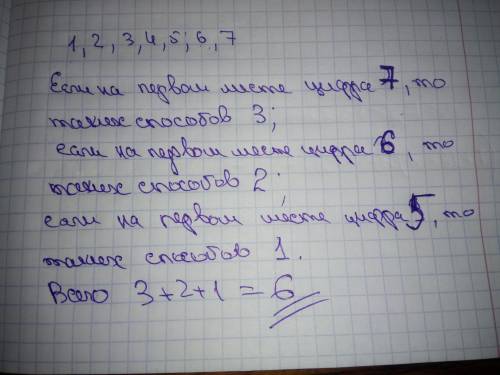 1, 2, 3, 4, 5, 6, 7
Если на первом месте цифра 7, то
таких способов 3;
если на первом месте цифра 6, то
таких способов 2;
если на первом месте цифра 5, то
таких способов 1.
Всего 3+2+1 = 6